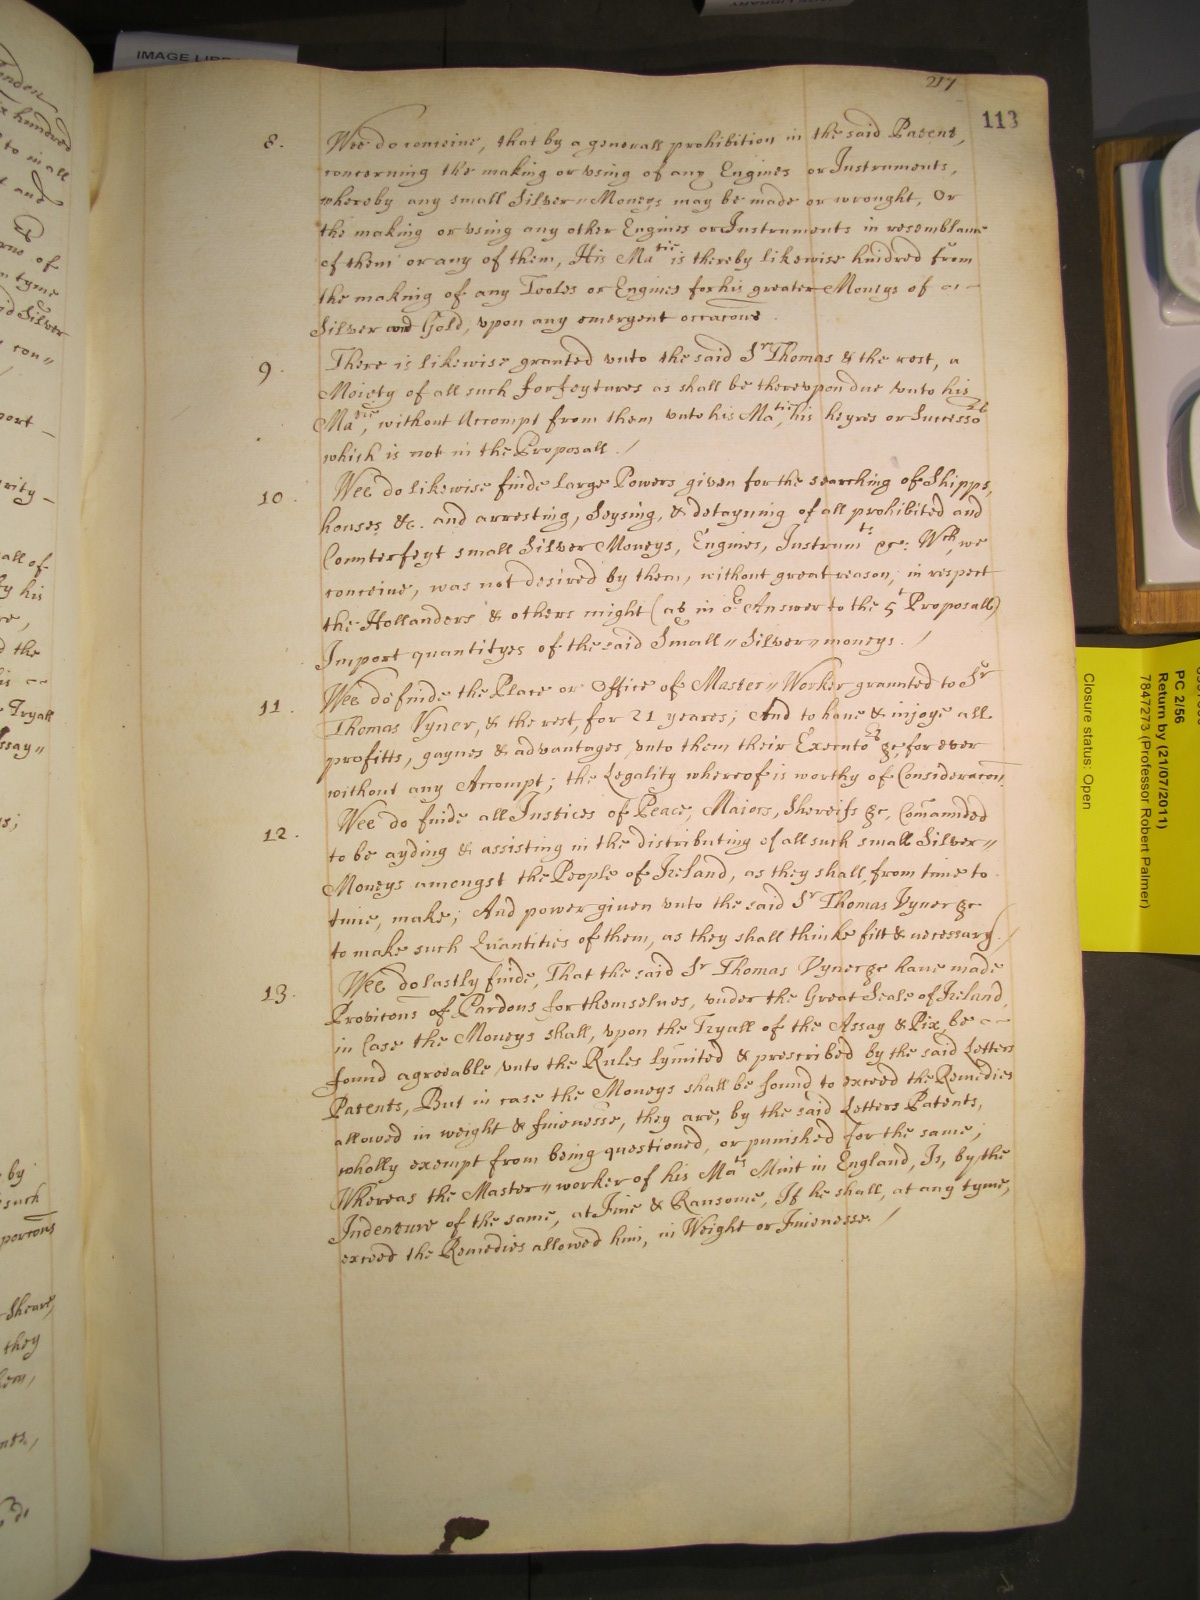 IMAGE LIBR
217
113
8. Wee do conceiue, that by a generall prohibition in the said Patent,
concerning the making or vsing of any Engines or Instruments,
whereby any small Silver-Moneys may be made or wrought, Or
the making or vsing any other Engines or Instruments in resemblance
of them or any of them, His Matie is thereby likewise hindred from
the making of any Tooles or Engines for his greater Moneys of
Silver and Gold, vpon any emergent occacons.
9. There is likewise granted vnto the said Sr Thomas & the rest, a
Moiety of all such forfeytures as shall be therevpon due vnto his
Matie, without Accompt from them vnto his Matie, his heyres or Successors
which is not in the Proposall. /
10. Wee do likewise finde large Powers given for the searching of Shipps,
houses &c. and arresting, Seysing, & detayning of all prohibited and
Counterfeyt small Silver Moneys, Engines, Instrumts &c: Wch, we
conceiue, was not desired by them, without great reason, in respect
the Hollanders & others might (as in or Answer to the 5t Proposall)
Import quantityes of the said Small-Silver-moneys. /
11. Wee do finde the Place or Office of Master-Worker graunted to Sr
Thomas Vyner, & the rest, for 21 yeares; And to haue & injoye all
profitts, gaynes & advantages, vnto them their Executors &c, for ever
without any Accompt; the Legality whereof is worthy of Consideracon.
12. Wee do finde all Justices of Peace, Maiors, Shereifs &c, Comaunded
to be ayding & assisting in the distributing of all such small Silver-
Moneys amongst the People of Ireland, as they shall, from time to
time, make; And power given vnto the said Sr Thomas Vyner &c
to make such Quantities of them, as they shall thinke fitt & necessary. /
13. Wee do lastly finde, That the said Sr Thomas Vyner &c haue made
Provicons of Pardons for themselues, vnder the Great Seale of Ireland,
in Case the Moneys shall, vpon the Tryall of the Assay & Pix, be
found agreeable vnto the Rules lymited & prescribed by the said Letters
Patents, But in case the Moneys shall be found to exceed the Remedies
allowed in weight & finenesse, they are, by the said Letters Patents,
wholly exempt from being questioned, or punished for the same;
Whereas the Master-worker of his Mats Mint in England, Is, by the
Indenture of the same, at Fine & Ransome, If he shall, at any tyme,
exceed the Remedies allowed him, in Weight or Finenesse. /
PC 2/56
Return by (21/07/2011)
7847273 (Professor Robert Palmer)
Closure status: Open